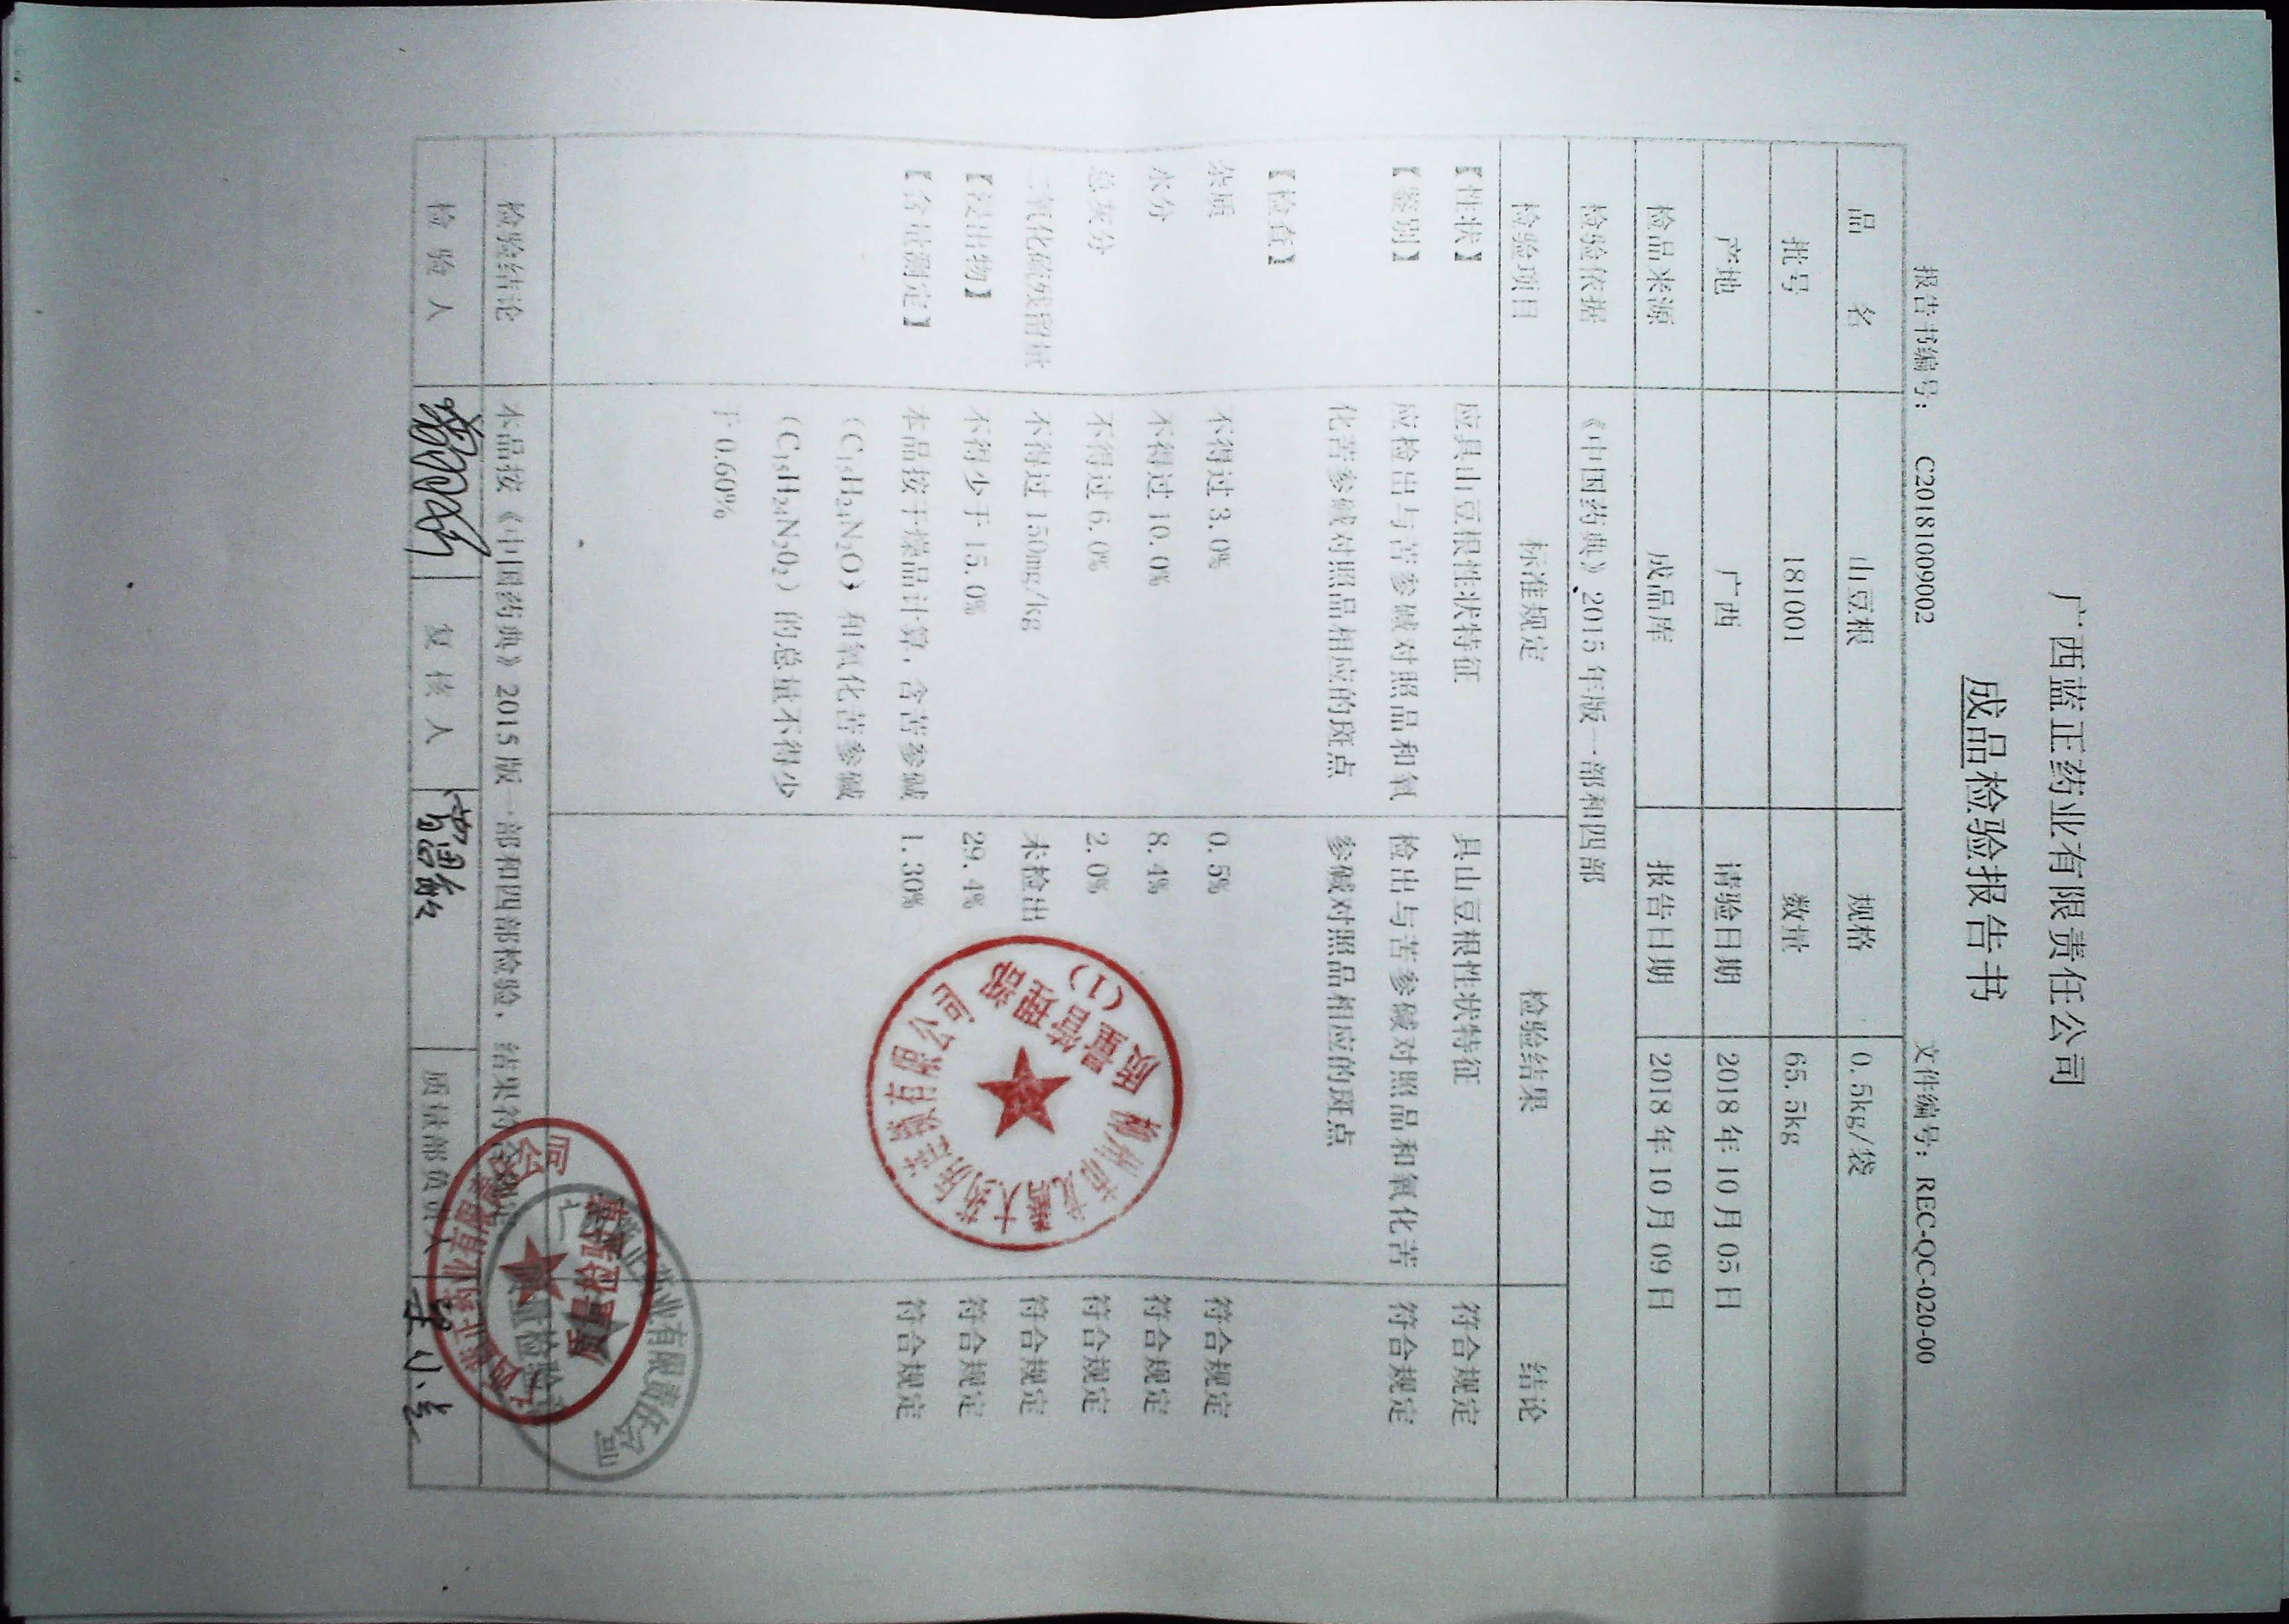 广西蓝正药业有限责任公司
成品检验报告书
报告书编号： C20181009002 文件编号：REC-QC-020-00
品 名 山豆根 规格 0.5kg/袋
批号 181001 数量 65.5kg
产地 广西 请验日期 2018年10月05日
检品来源 成品库 报告日期 2018年10月09日
检验依据 《中国药典》2015年版一部和四部
检验项目 标准规定 检验结果 结论
【性状】 应具山豆根性状特征 具山豆根性状特征 符合规定
【鉴别】 应检出与苦参碱对照品和氧 检出与苦参碱对照品和氧化苦 符合规定
化苦参碱对照品相应的斑点 参碱对照品相应的斑点
【检查】
杂质 不得过3.0% 0.5% 符合规定
水分 不得过10.0% 8.4% 符合规定
总灰分 不得过6.0% 2.0% 符合规定
二氧化硫残留量 不得过150mg/kg 未检出 符合规定
【浸出物】 不得少于15.0% 29.4% 符合规定
【含量测定】 本品按干燥品计算，含苦参碱 1.30% 符合规定
（C₁₅H₂₄N₂O）和氧化苦参碱
（C₁₅H₂₄N₂O₂）的总量不得少
于0.60%
检验结论 本品按《中国药典》2015版一部和四部检验，结果符合规定
检 验 人 复 核 人 质量部负责人
大药房连锁有限公司
质量管理部
（1）
广西蓝正药业有限责任公司
质量检验章
广西蓝正药业有限责任公司
质量检验章